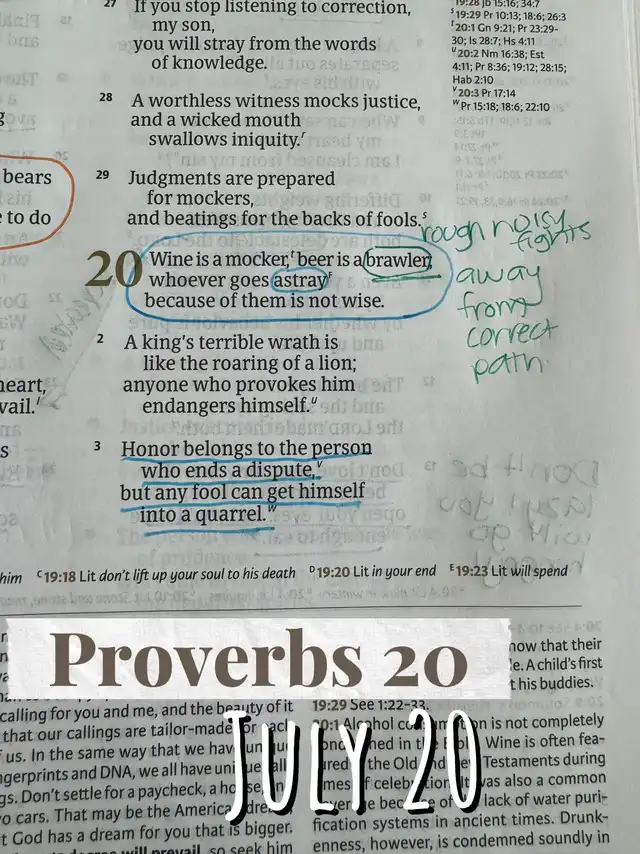 27 If you stop listening to correction,
my son,
you will stray from the words
of knowledge.
28 A worthless witness mocks justice,
and a wicked mouth
swallows iniquity.r
29 Judgments are prepared
for mockers,
and beatings for the backs of fools.s
20 Wine is a mocker,t beer is a brawler;
whoever goes astrayF
because of them is not wise.
2 A king's terrible wrath is
like the roaring of a lion;
anyone who provokes him
endangers himself.u
3 Honor belongs to the person
who ends a dispute,v
but any fool can get himself
into a quarrel.w
19:28 Jb 15:16; 34:7
s 19:29 Pr 10:13; 18:6; 26:3
t 20:1 Gn 9:21; Pr 23:29-
30; Is 28:7; Hs 4:11
u 20:2 Nm 16:38; Est
4:11; Pr 8:36; 19:12; 28:15;
Hab 2:10
v 20:3 Pr 17:14
w Pr 15:18; 18:6; 22:10
rough noisy
fights
away
from
correct
path
bears
to do
heart,
vail.'
s
him C 19:18 Lit don't lift up your soul to his death D 19:20 Lit in your end E 19:23 Lit will spend
Proverbs 20
JULY 20
calling for you and me, and the beauty of it
that our callings are tailor-made
us. In the same way that we have
ngerprints and DNA, we all have
gs. Don't settle for a paycheck, a
o cars. That may be the America
t God has a dream for you that is bigger.
will prevail, so seek him
now that their
A child's first
t his buddies.
19:29 See 1:22-33.
20:1 Alcohol is not completely
in the Wine is often fea-
the Old Testaments during
of was also a common
lack of water puri-
fication systems in ancient times. Drunk-
enness, however, is condemned soundly in